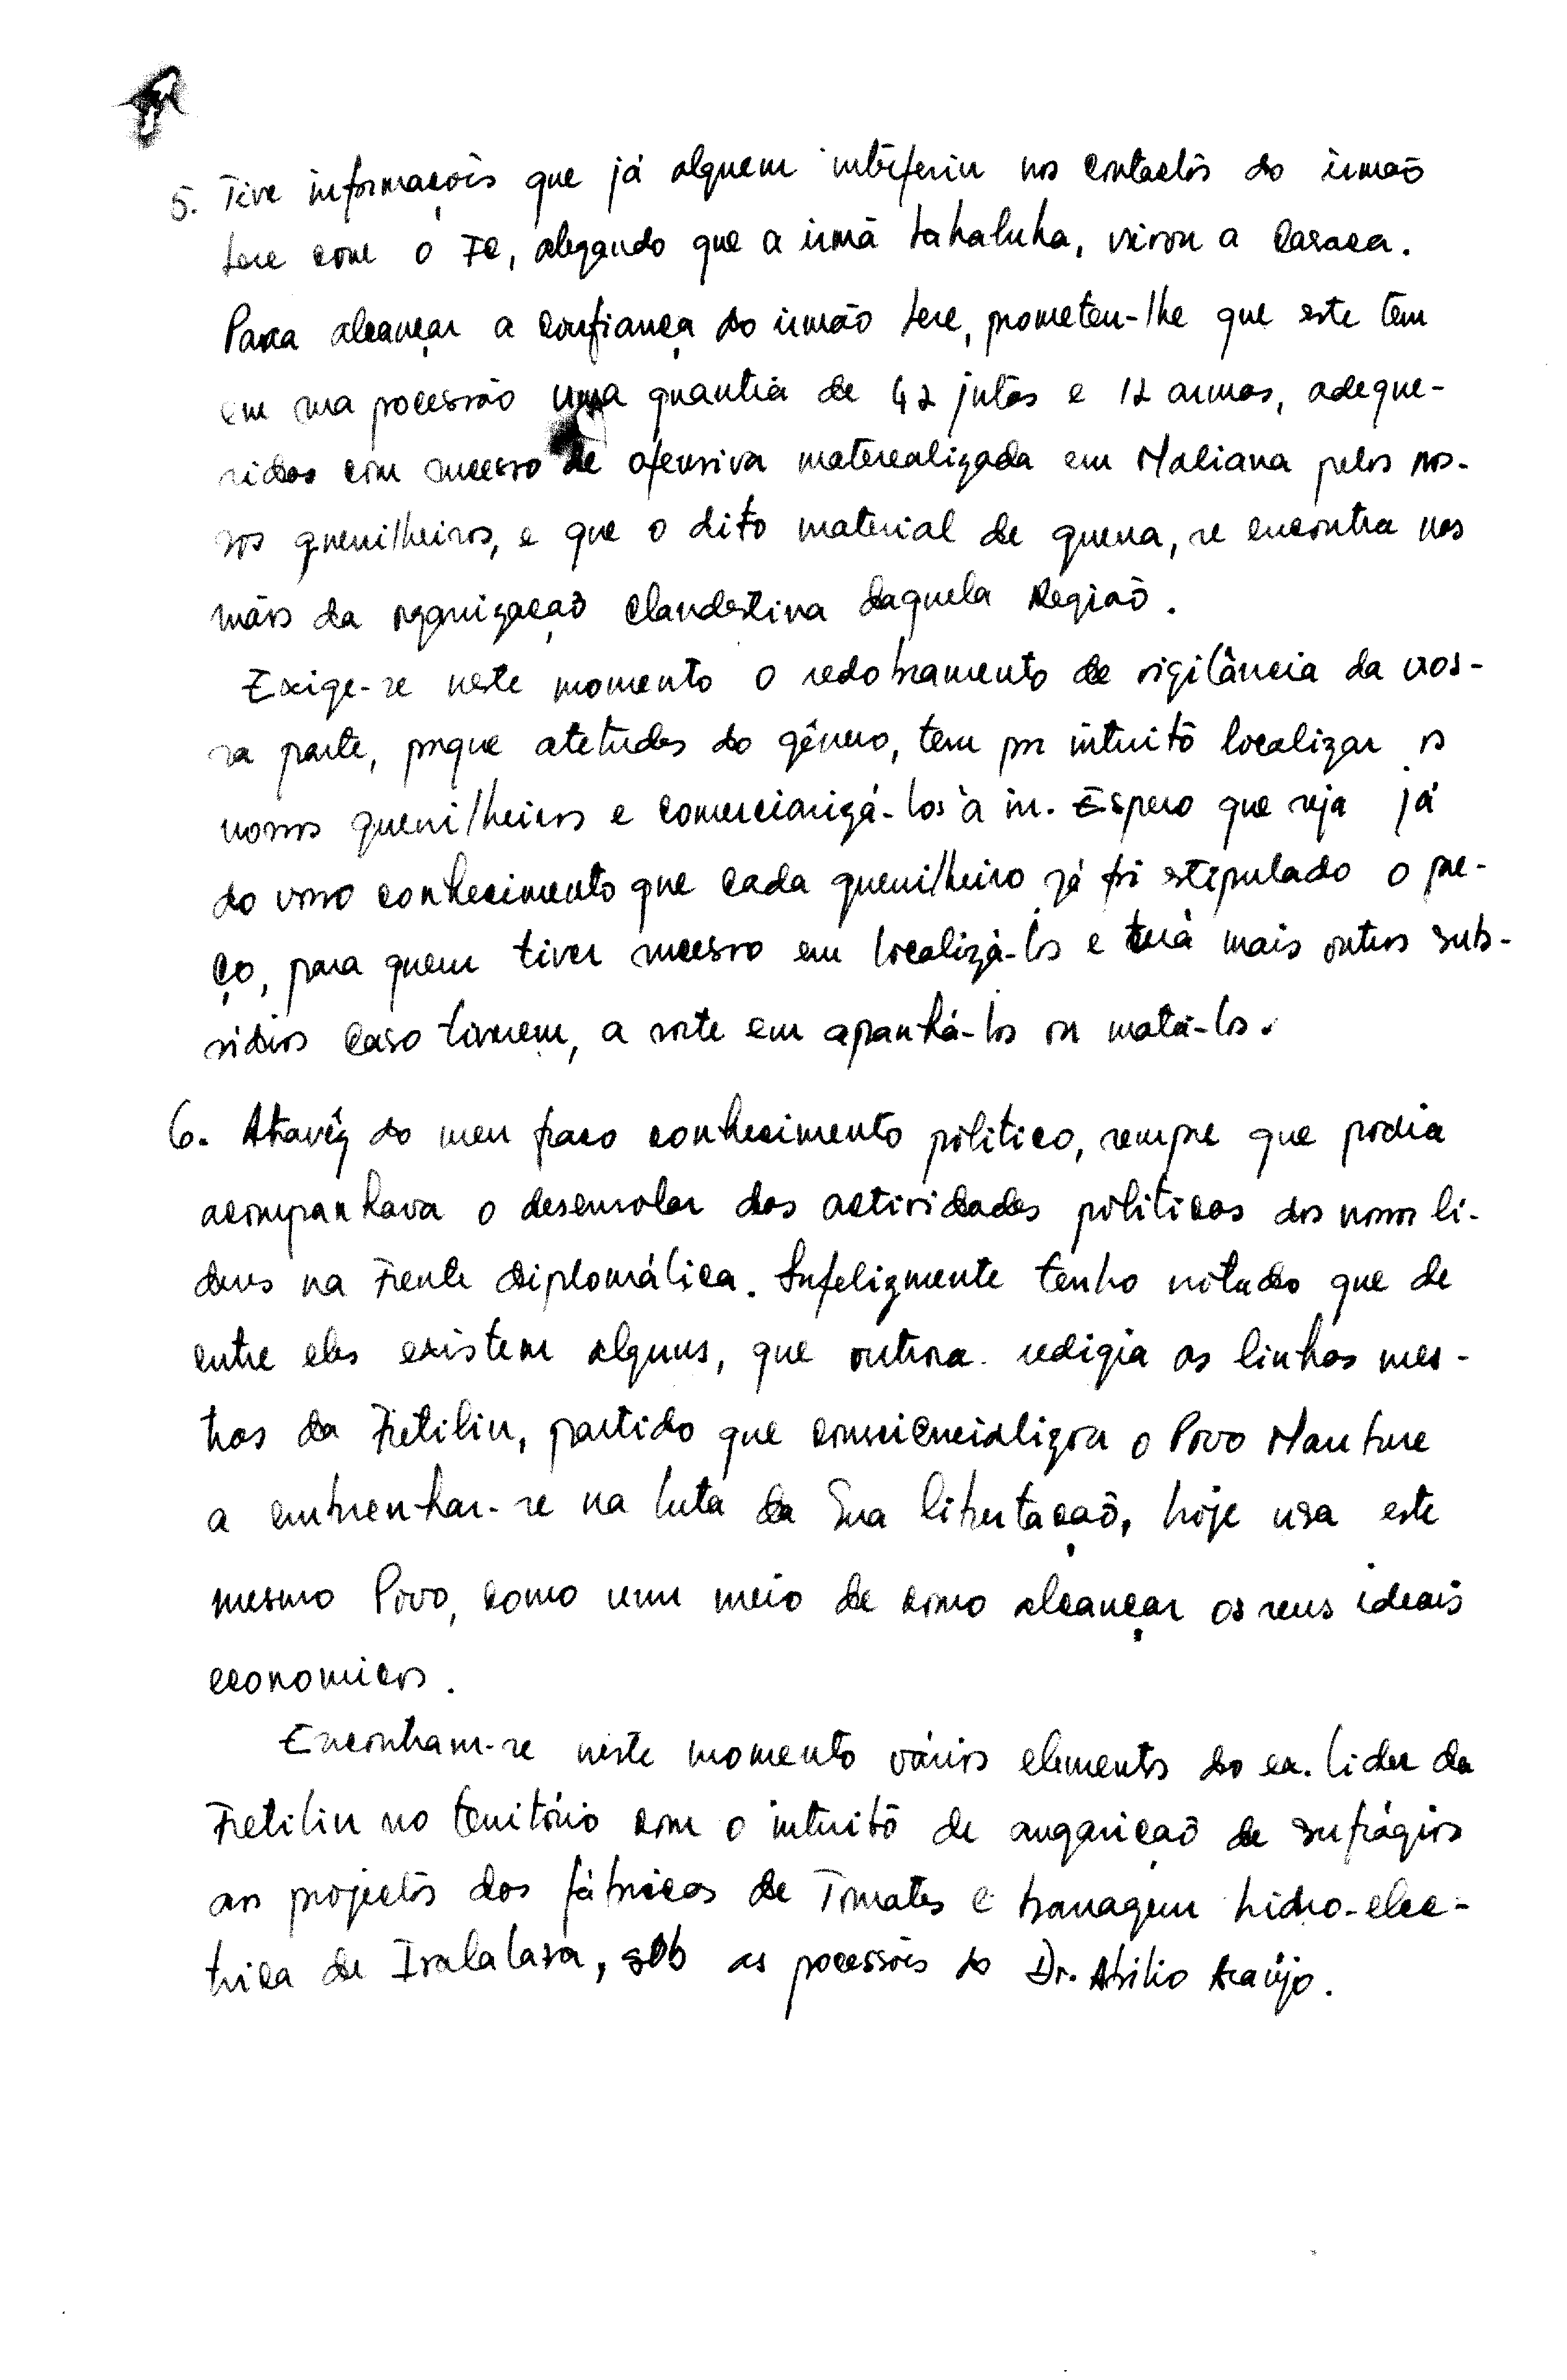 5. Tive informações que já alguem interferiu nos contactos do irmão
Sere com o FC, alegando que a irmã Kakaluka, virou a casaca.
Para alcançar a confiança do irmão Sere, prometeu-lhe que este tem
em sua pocessão uma quantia de 42 jutas e 12 armas, adeque-
ridas com sucesso de ofensiva materealizada em Maliana pelos nos-
sos guerrilheiros, e que o dito material de guerra, se encontra nas
mãos da organização clandestina daquela Região.
Exige-se neste momento o redobramento de vigilância da vos-
sa parte, porque atetudes do gênero, tem por intuito localizar os
nossos guerrilheiros e comerciarizá-los à in. Espero que seja já
do vosso conhecimento que cada guerrilheiro já foi estipulado o pre-
ço, para quem tiver sucesso em localizá-los e terá mais outros sub-
sidios caso tiverem, a sorte em apanhá-los ou matá-los.
6. Atravéz do meu fraco conhecimento politico, sempre que podia
acompanhava o desenrolar das actividades politicas dos nossos li-
deres na Frente diplomática. Infelizmente tenho notado que de
entre eles existem alguns, que outrora redigia as linhas mes-
tras da Fretilin, partido que consciencializou o Povo Maubere
a embrenhar-se na luta da Sua libertação, hoje usa este
mesmo Povo, como um meio de como alcançar os seus ideais
economicos.
Encontram-se neste momento vários elementos do ex. lider da
Fretilin no território com o intuito de angarição de sufrágios
aos projectos das fábricas de Tomates e barragem hidro-elec-
trica de Iralalara, sob as pocessões do Dr. Abilio Araújo.